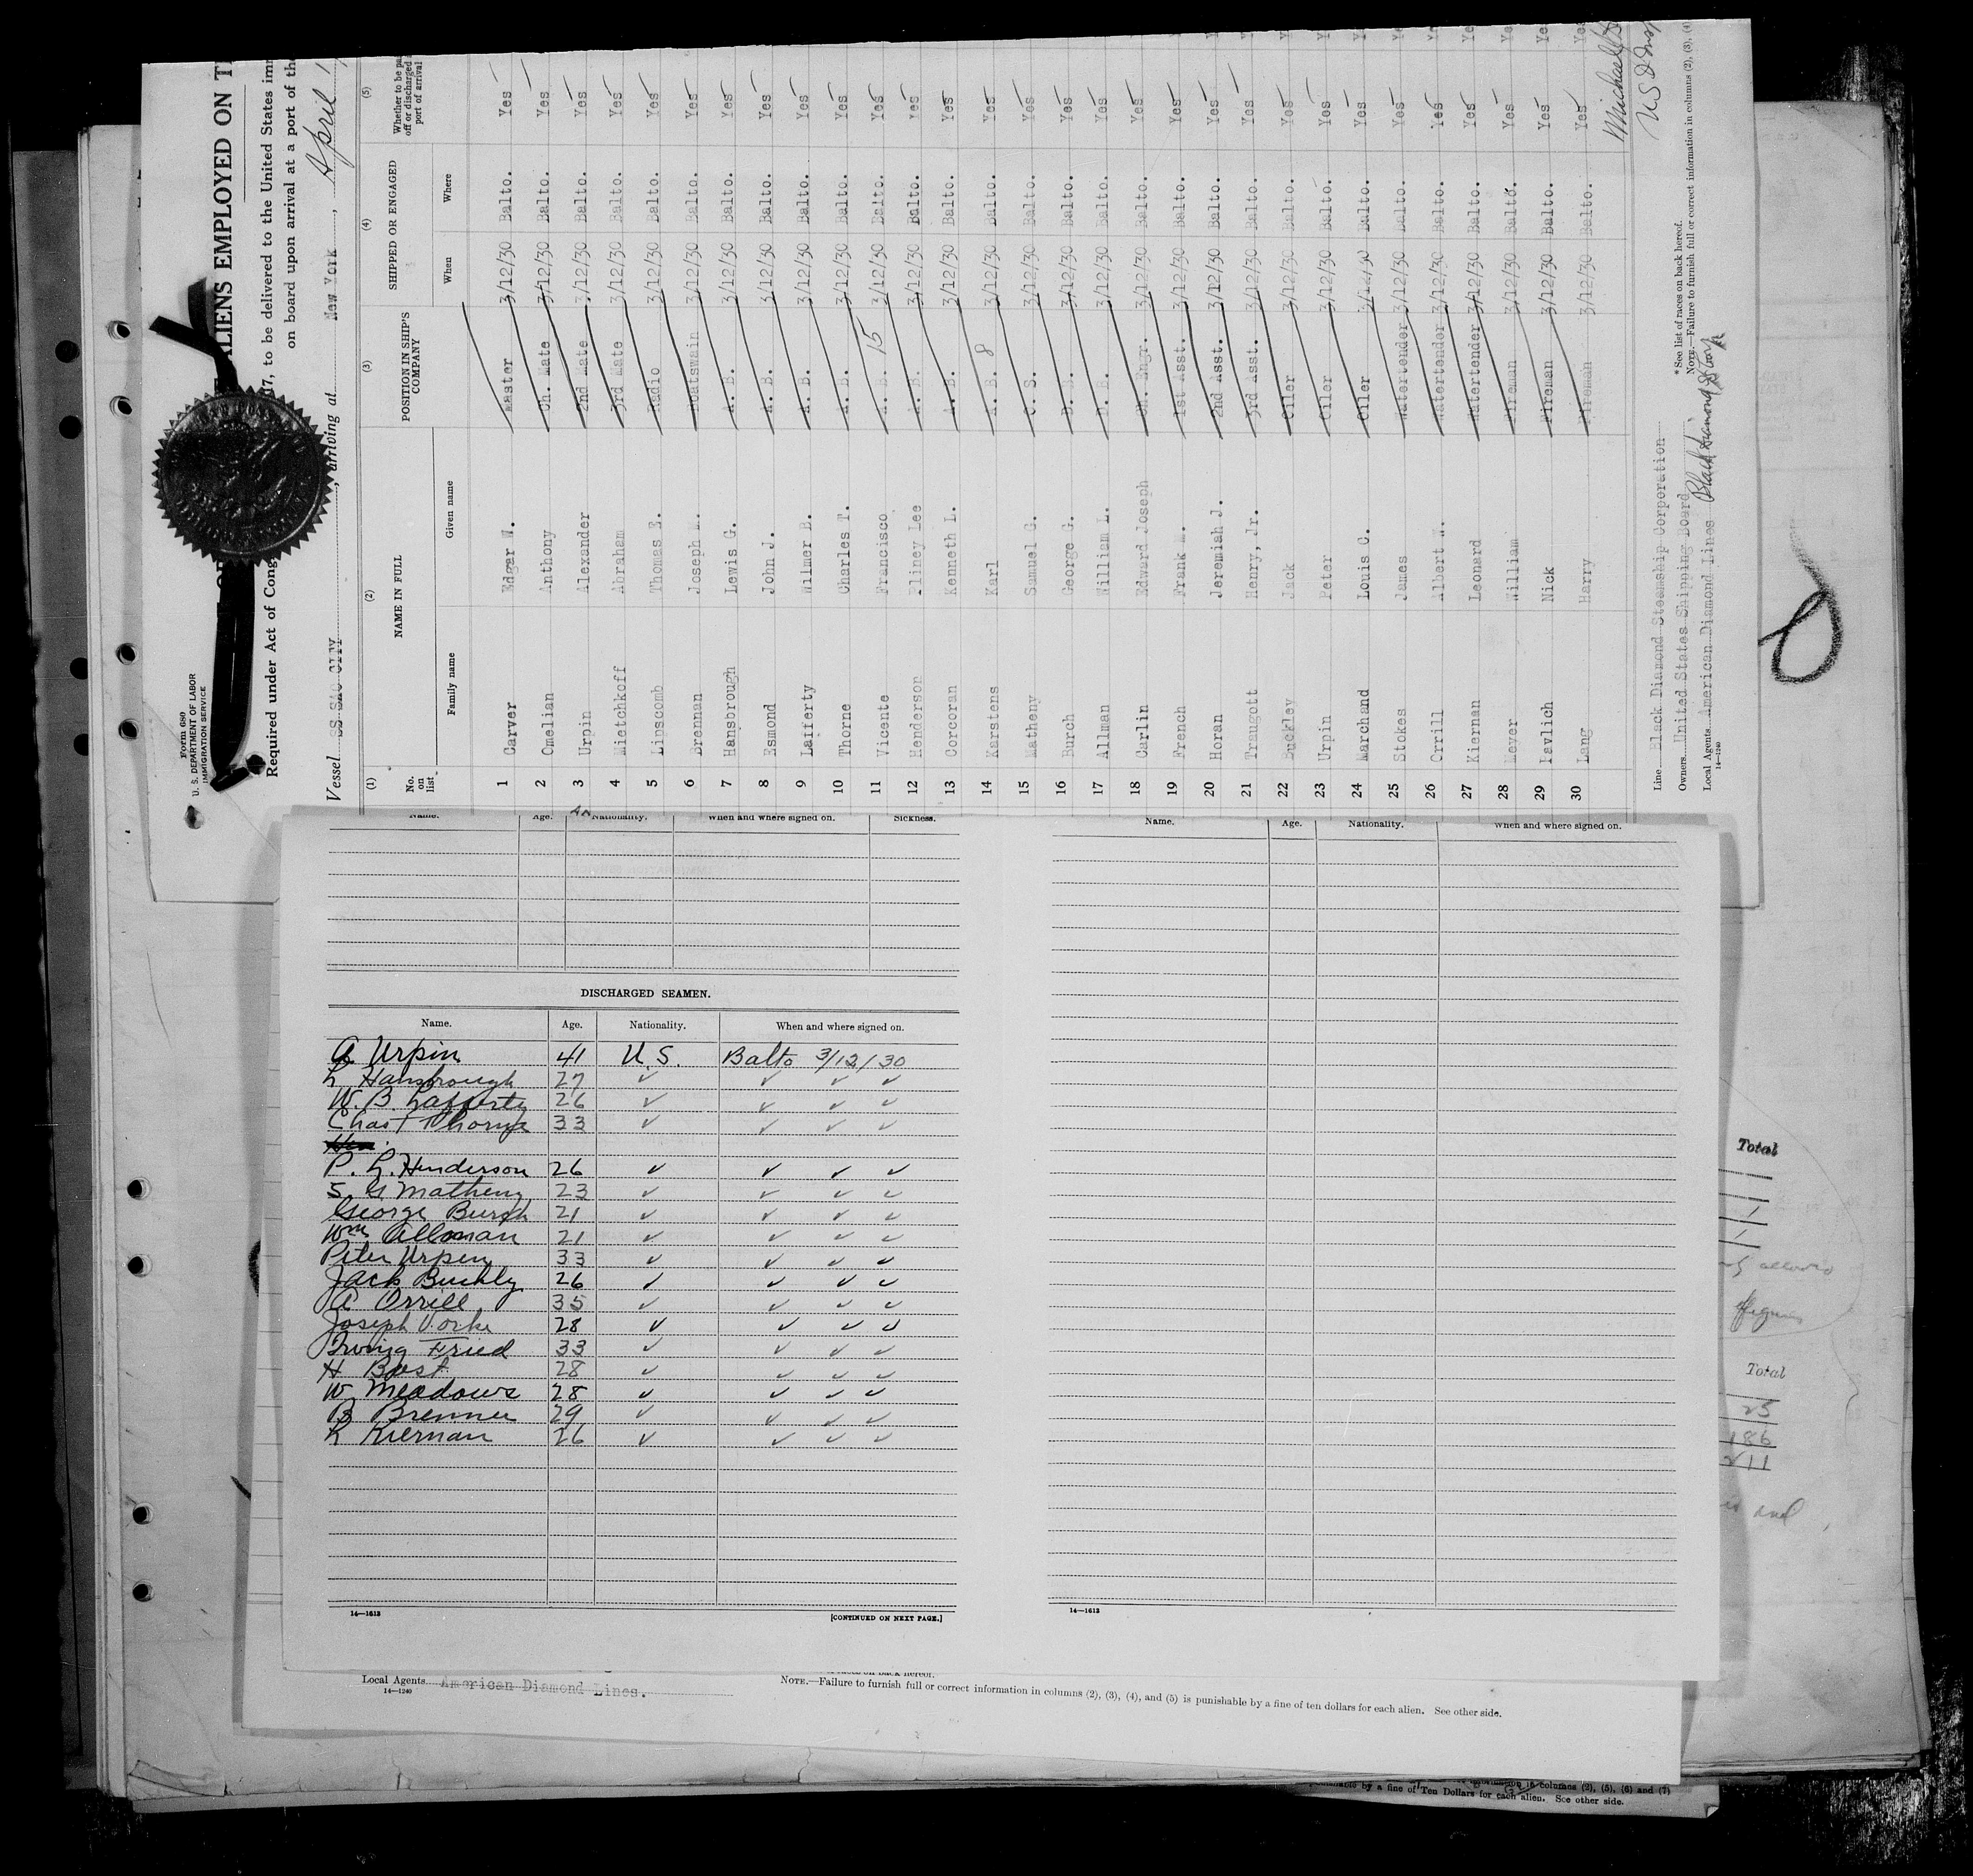 Form 680
U. S. DEPARTMENT OF LABOR
IMMIGRATION SERVICE
ALIENS EMPLOYED ON
Required under Act of Cong 17, to be delivered to the United States
on board upon arrival at a port of the
Vessel SS SAC CITY, arriving at New York, April 1
(1) (2) (3) (4) (5)
No. on list NAME IN FULL POSITION IN SHIP'S COMPANY SHIPPED OR ENGAGED Whether to be off or discharged port of arrival
Family name Given name When Where
1 Carver Edgar W. Master 3/12/30 Balto. Yes
2 Omelian Anthony Ch. Mate 3/12/30 Balto. Yes
3 Urpin Alexander 2nd Mate 3/12/30 Balto. Yes
4 Mietchkoff Abraham 3rd Mate 3/12/30 Balto. Yes
5 Lipscomb Thomas E. Radio 3/12/30 Balto. Yes
6 Brennan Joseph L. Boatswain 3/12/30 Balto. Yes
7 Hansbrough Lewis G. A. B. 3/12/30 Balto. Yes
8 Esmond John J. A. B. 3/12/30 Balto. Yes
9 Lafferty Wilmer B. A. B. 3/12/30 Balto. Yes
10 Thorne Charles T. A. B. 3/12/30 Balto. Yes
11 Vicente Francisco A. B. 15 3/12/30 Balto. Yes
12 Henderson Pliney Lee A. B. 3/12/30 Balto. Yes
13 Corcoran Kenneth L. A. B. 3/12/30 Balto. Yes
14 Karstens Karl A. B. 8 3/12/30 Balto. Yes
15 Matheny Samuel G. O. S. 3/12/30 Balto. Yes
16 Burch George G. 3/12/30 Balto. Yes
17 Allman William L. 3/12/30 Balto. Yes
18 Carlin Edward Joseph Ch. Engr. 3/12/30 Balto. Yes
19 French Frank M. 1st Asst. 3/12/30 Balto. Yes
20 Horan Jeremiah J. 2nd Asst. 3/12/30 Balto. Yes
21 Traugott Henry, Jr. 3rd Asst. 3/12/30 Balto. Yes
22 Buckley Jack Oiler 3/12/30 Balto. Yes
23 Urpin Peter Oiler 3/12/30 Balto. Yes
24 Marchand Louis C. Oiler 3/12/30 Balto. Yes
25 Stokes James Watertender 3/12/30 Balto. Yes
26 Orrill Albert W. Watertender 3/12/30 Balto. Yes
27 Kiernan Leonard Watertender 3/12/30 Balto. Yes
28 Meyer William Fireman 3/12/30 Balto. Yes
29 Pavlich Nick Fireman 3/12/30 Balto. Yes
30 Lang Harry Fireman 3/12/30 Balto. Yes
Line Black Diamond Steamship Corporation
Owners United States Shipping Board
Local Agents American Diamond Lines
14—1240
* See list of races on back hereof.
NOTE.—Failure to furnish full or correct information in columns (2), (3), (4)
Name. Age. Nationality. When and where signed on. Sickness.
Name. Age. Nationality. When and where signed on.
DISCHARGED SEAMEN.
Name. Age. Nationality. When and where signed on.
A Urpin 41 U.S. Balto 3/12/30
L Hansbrough 27 ✓ ✓ ✓ ✓
W. B. Lafferty 26 ✓ ✓ ✓ ✓
Chas T Thorne 33 ✓ ✓ ✓ ✓
P. L. Henderson 26 ✓ ✓ ✓ ✓
S. G Matheny 23 ✓ ✓ ✓ ✓
George Burch 21 ✓ ✓ ✓ ✓
Wm Allman 21 ✓ ✓ ✓ ✓
Peter Urpin 33 ✓ ✓ ✓ ✓
Jack Buckly 26 ✓ ✓ ✓ ✓
A Orrill 35 ✓ ✓ ✓ ✓
Joseph 28 ✓ ✓ ✓ ✓
Irving Fried 33 ✓ ✓ ✓ ✓
H Bost 28 ✓ ✓ ✓ ✓
W Meadows 28 ✓ ✓ ✓ ✓
B Brenner 29 ✓ ✓ ✓ ✓
L Kiernan 26 ✓ ✓ ✓ ✓
14—1613
[CONTINUED ON NEXT PAGE.]
14—1613
Total
allowed
Total
25
186
211
and
Local Agents American Diamond Lines.
14—1240
NOTE.—Failure to furnish full or correct information in columns (2), (3), (4), and (5) is punishable by a fine of ten dollars for each alien. See other side.
columns (2), (5), (6) and (7)
by a fine of Ten Dollars for each alien. See other side.